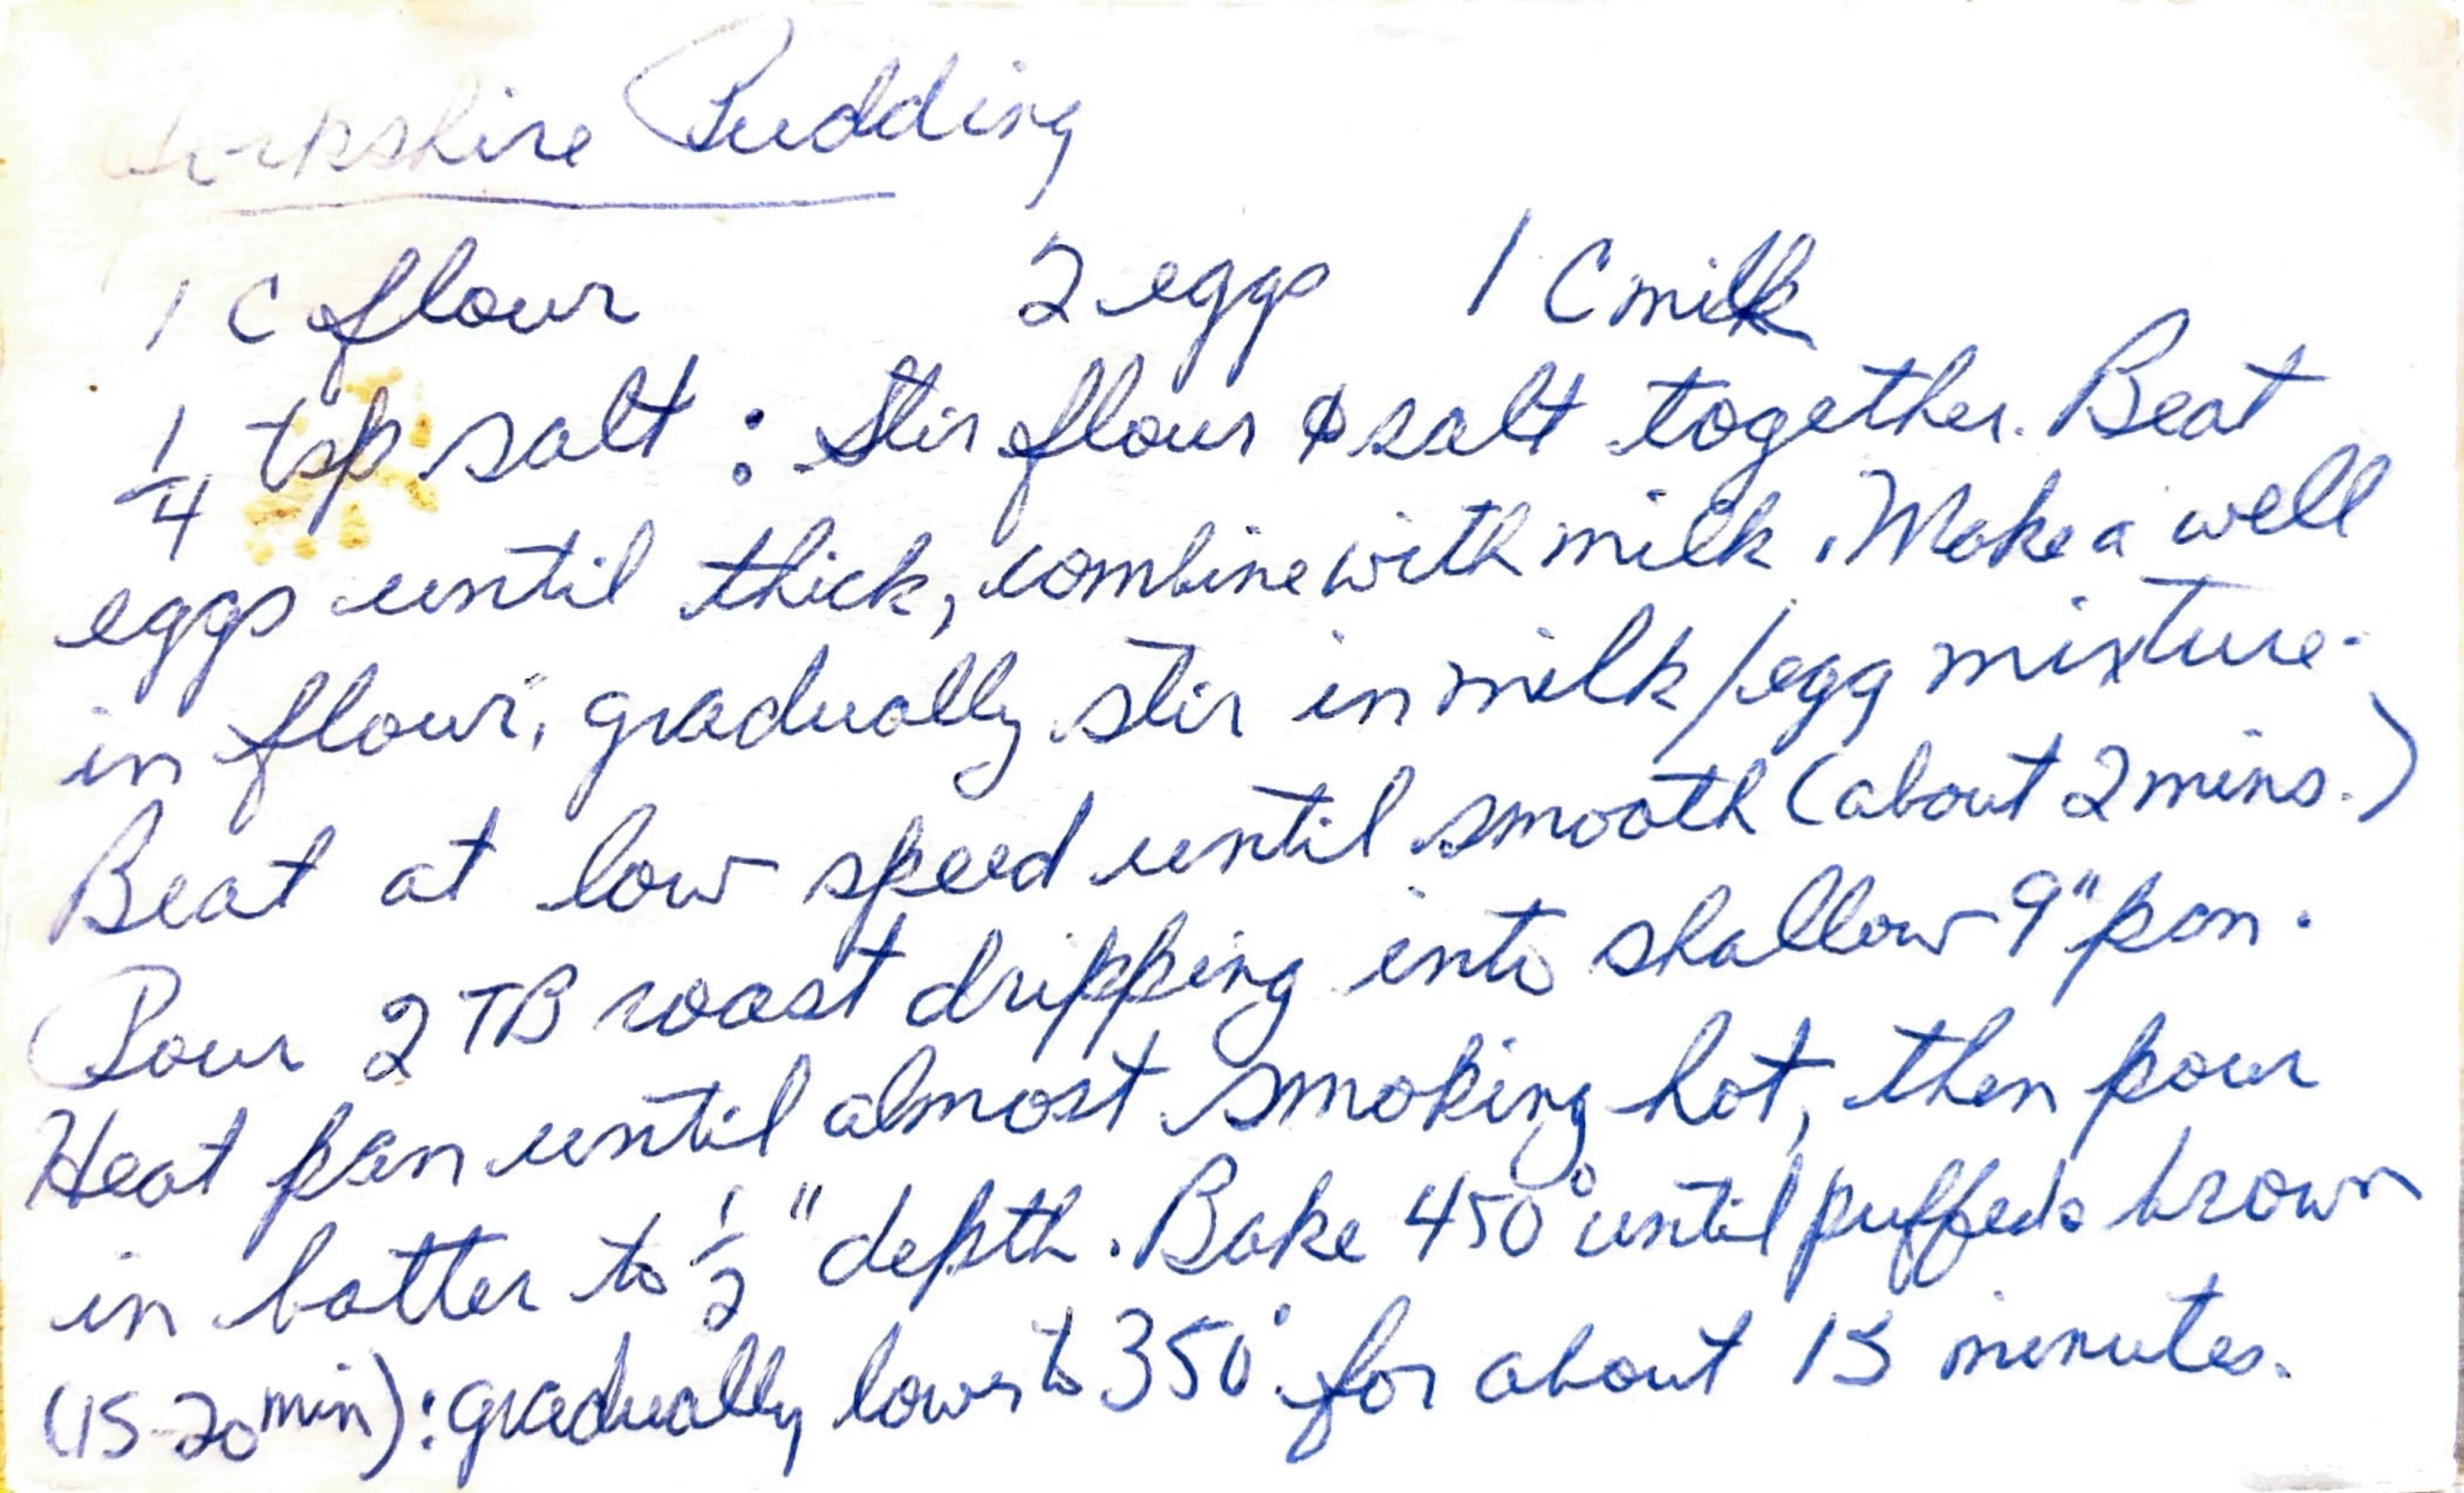 Yorkshire Pudding
1 C flour 2 eggs 1 C milk
1/4 tsp salt : Stir flour & salt together. Beat
eggs until thick, combine with milk. Make a well
in flour, gradually stir in milk/egg mixture.
Beat at low speed until smooth (about 2 mins.)
Pour 2 TB roast dripping into shallow 9" pan.
Heat pan until almost smoking hot, then pour
in batter to 1/2" depth. Bake 450° until puffed & brown
(15-20 min): gradually lower to 350° for about 15 minutes.